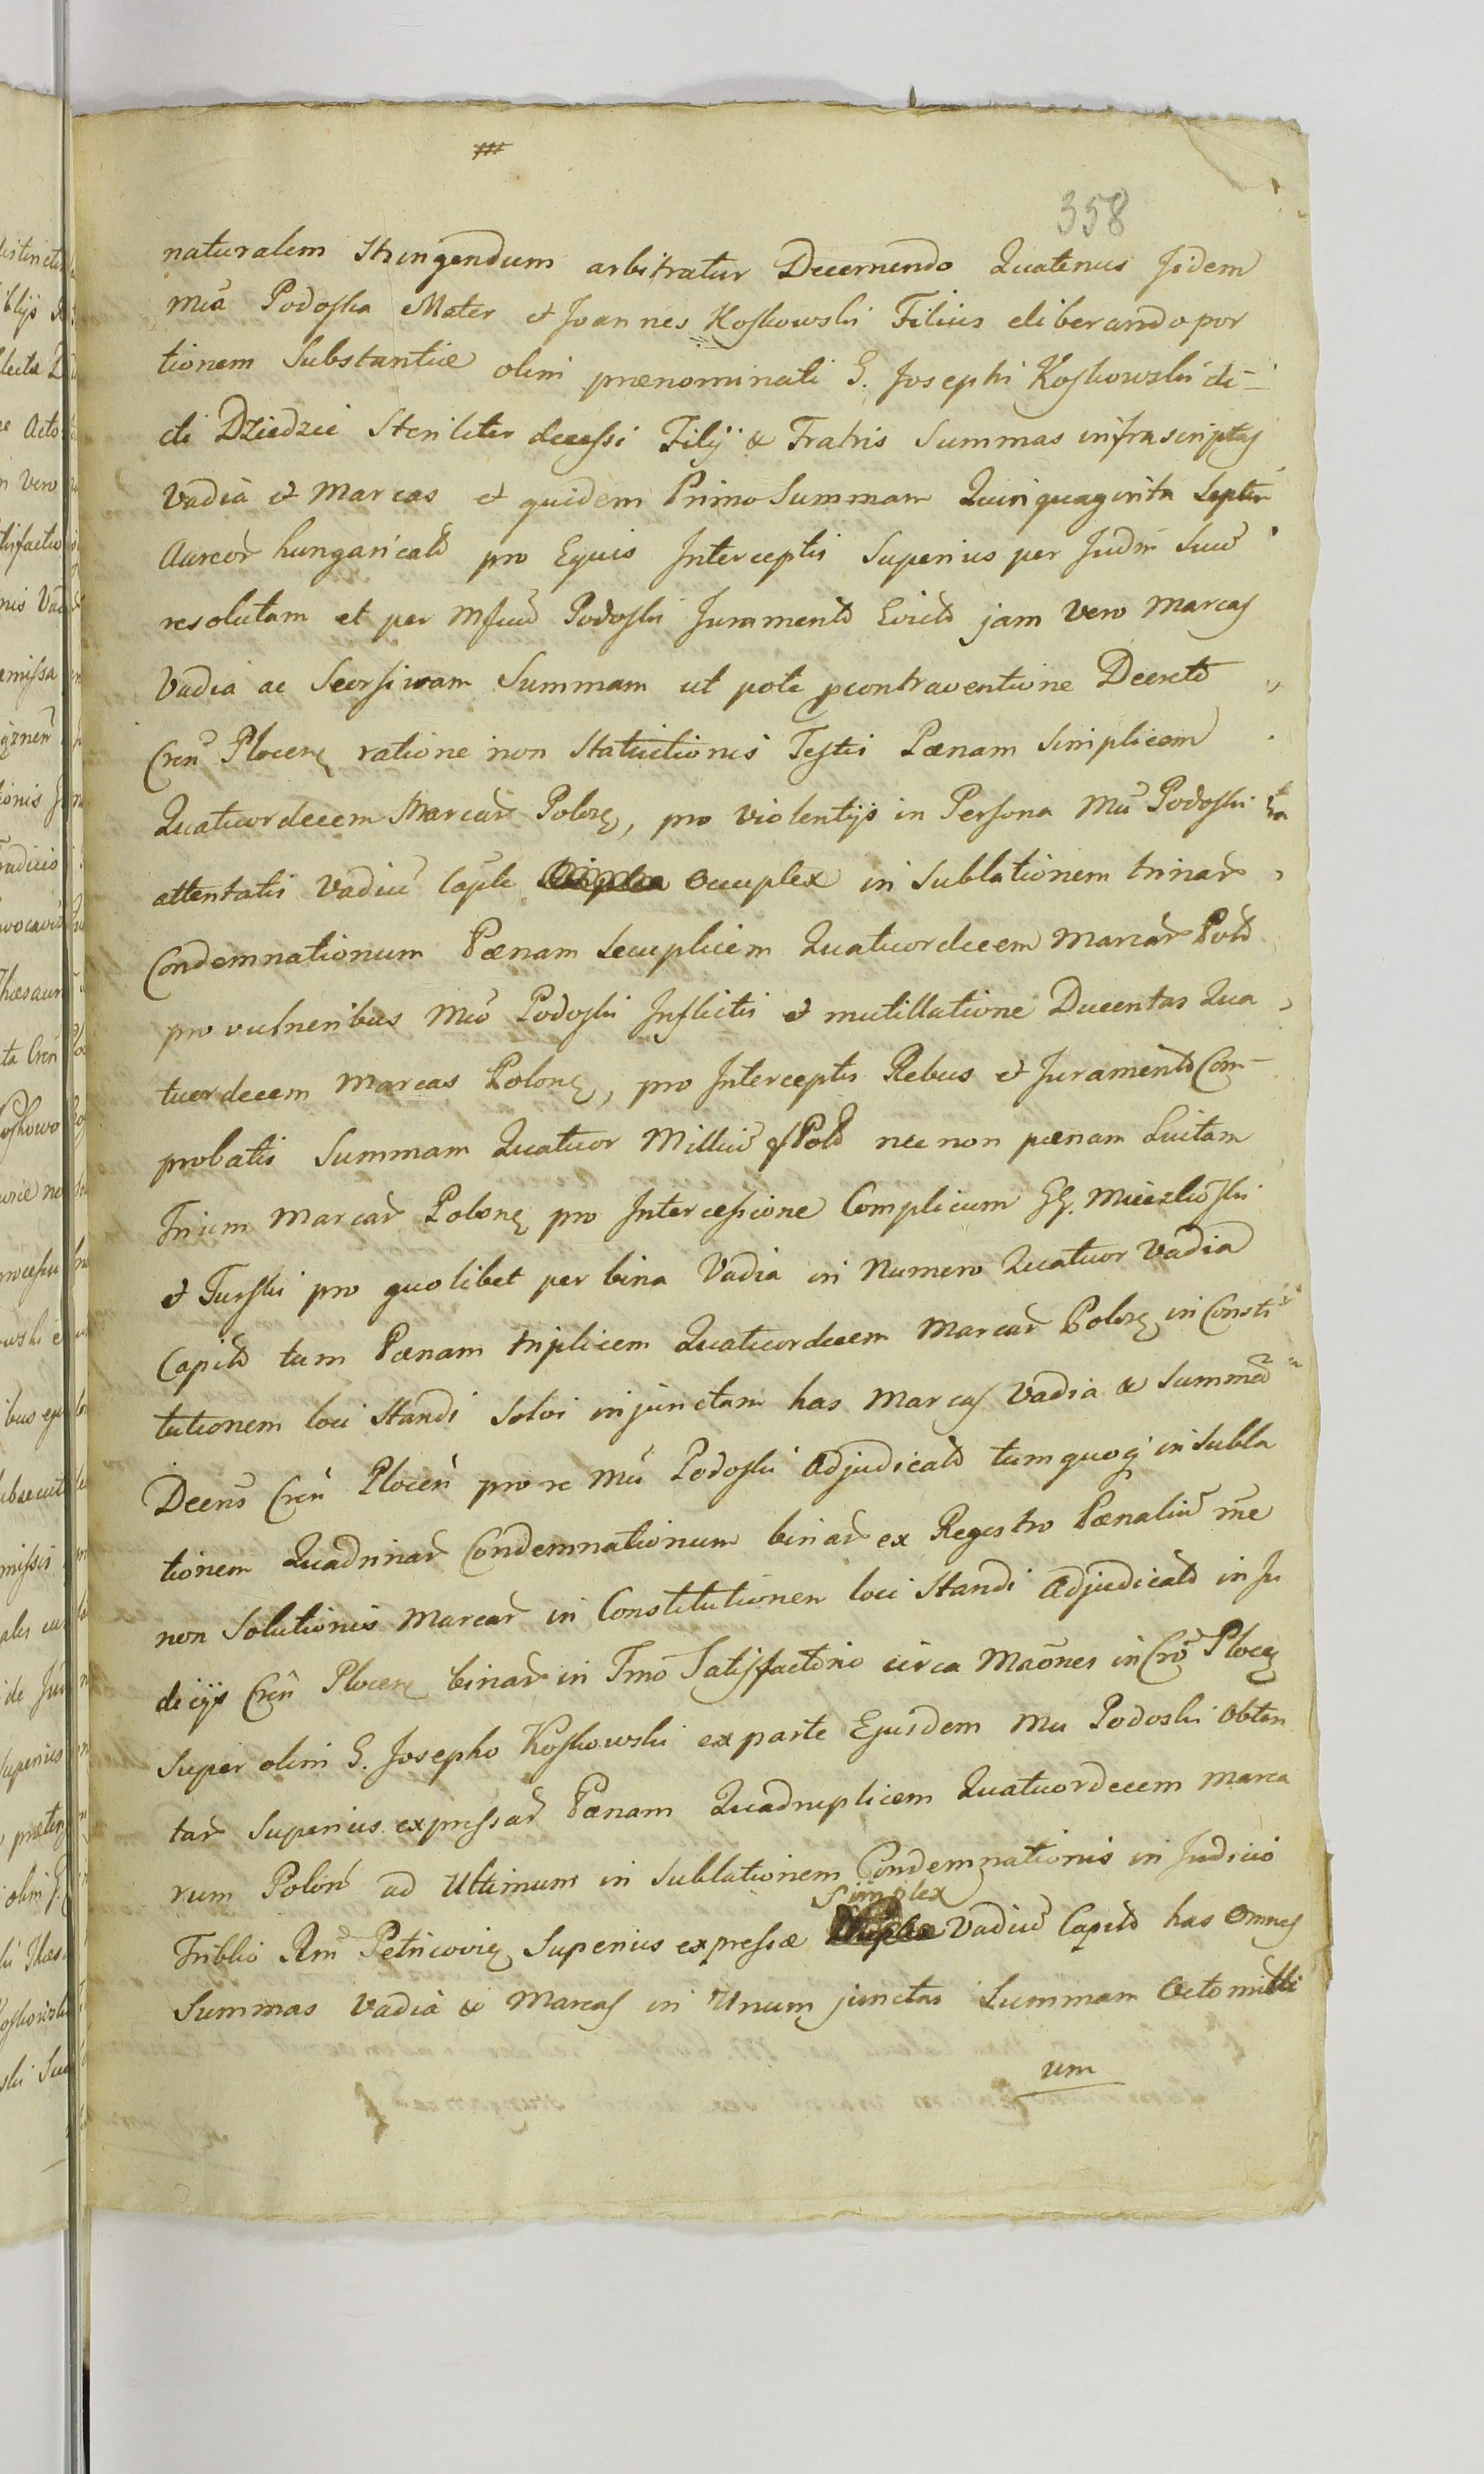 358
naturalem Stringendum arbitratur Decernendo Quatenus Jidem
Mca Podoska Mater et Joannes Koskowski Filius eliberando por
tionem Substantiæ olim prænominati G. Josephi Koskowski di=
cti Dziedzic Steriliter decessi Filij & Fratris Summas infrascriptas
Vadia et Marcas et quidem Primo Summam Quinquaginta Septem
Aureor hungaricalt pro Equis Interceptis Superius per Judm Suũ
resolutam et per Mfcuũ Podoski Jurament Evict jam vero Marcas
Vadia ac Seorsivam Summam ut pote pcontraventione Decret
Cren Plocen ratione non Statuitionis Testis Pænam Simplicem
Quatuordecem Marcar Polon, pro violentijs in Persona Mci Podoski
attentatis Vadiũ Caple occuplex in Sublationem trinar
Condemnationum Pænam Secuplicem Quatuordecem Marcar Pol
pro vulneribus Mco Podoski Inflictis et mutillatione Ducentas Qua
tuordecem Marcas Polon, pro Interceptis Rebus et Jurament Com-
probatis Summam Quatuor Milliũ f Pol nec non pænam Luitam
Trium Marcar Polon pro Intercessione Complicum GG. Mieszkoski
et Turski pro quolibet per bina Vadia in Numero Quatuor Vadia
Capit tum Pænam triplicem Quatuordecem Marcar Polon in Consti
tutionem loci Standi Solvi injunctam has Marcas Vadia & Summas
Decris Cren Plocen pro re Mci Podoski Adjudicat tum quoq in Subla
tionem Quadrinar Condemnationum binar ex Regestro Pænaliũ rne
non Solutionis Marcar in Constitutionem loci Standi Adjudicat in Ju
dicijs Cren Plocen binar in Tmo Satisfactorio circa Maones in Cro Plocen
Super olim G. Josepho Koskowski ex parte Ejusdem Mci Podoski Obten
tar Superius expressar Pænam Quadruplicem Quatuordecem Marca
rum Polon ad Ultimum in Sublationem Condemnationis in Judicio
Simplex
Triblio Rni Petricovien Superius expressæ Vadiũ Capit has Omnes
Summas Vadia & Marcas in Unum junctas Summam Octo milli
um